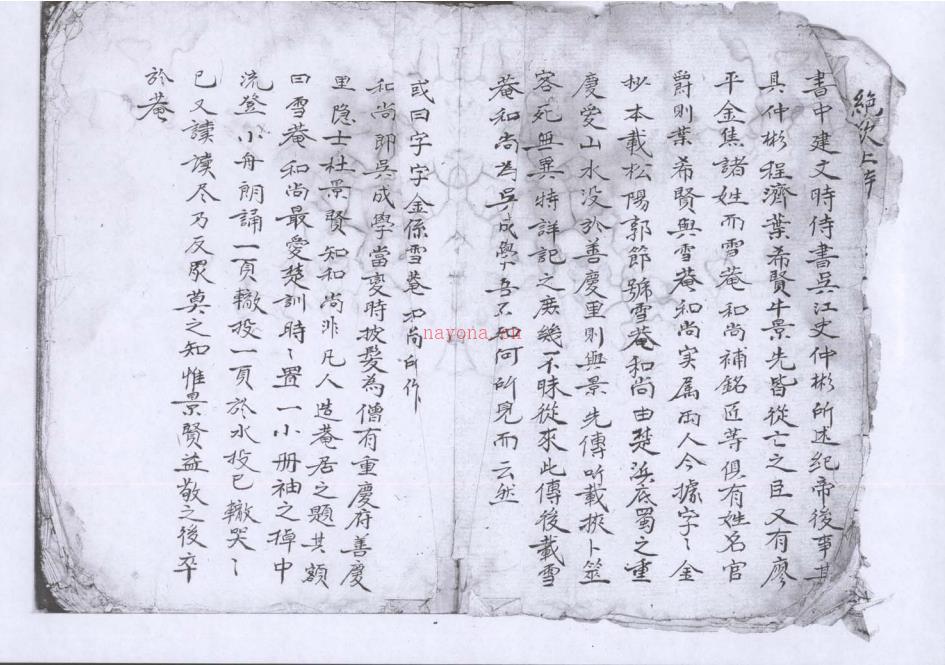 絶次上本
書中建文時侍書吳江史仲彬所述紀帝後事其
具仲彬程濟葉希賢牛景先皆從亡之臣又有廖
平金焦諸姓而雪菴和尚補鍋匠等俱有姓名官
爵則葉希賢與雪菴和尚实属兩人今據字〻金
抄本載松陽郭節號雪菴和尚由楚浜底蜀之重
慶愛山水没於善慶里則與景先傳所載挾卜筮
客死無異特詳記之庶幾不昧從來此傳後載雪
菴和尚為吳成學吾不知何所見而云然
或曰字字金係雪菴和尚所作
和尚即吳成學當变時披髪為僧有重慶府善慶
里隐士杜景賢知和尚非凡人造菴居之題其額
曰雪菴和尚最愛楚訓時〻置一小册袖之掉中
流登小舟朗誦一頁轍投一頁於水投已轍哭〻
已又讀讀尽乃反眾莫之知惟景賢益敬之後卒
於菴
nayona.cn